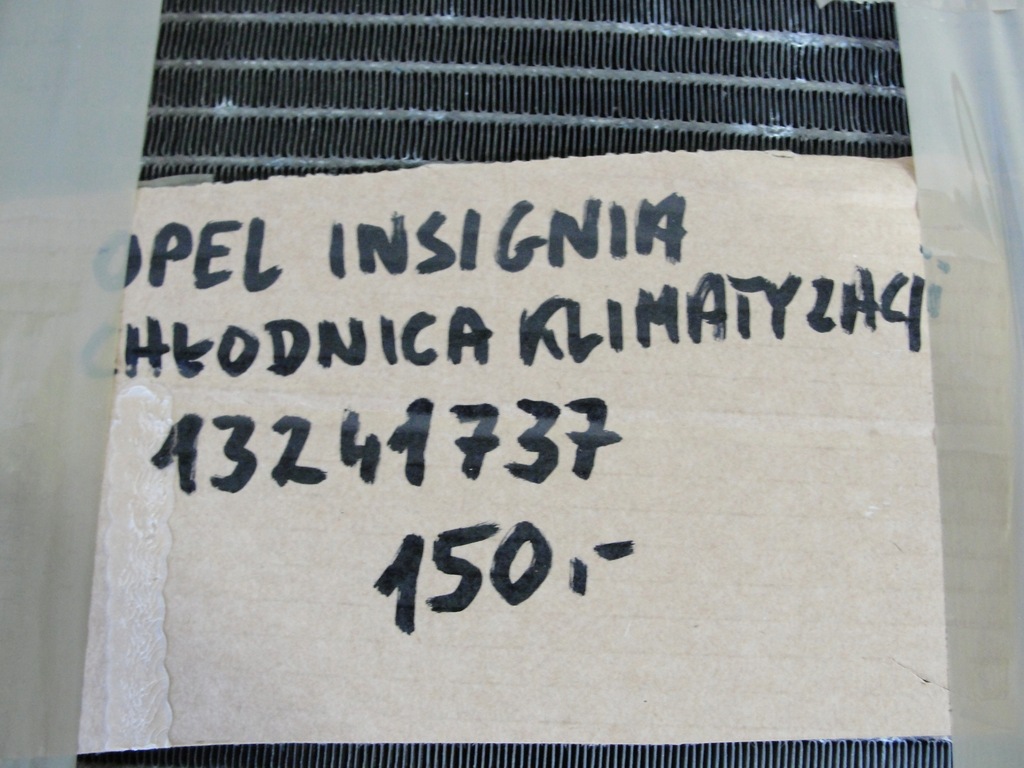 OPEL INSIGNIA
CHŁODNICA KLIMATYZACJI
13241737
150,-